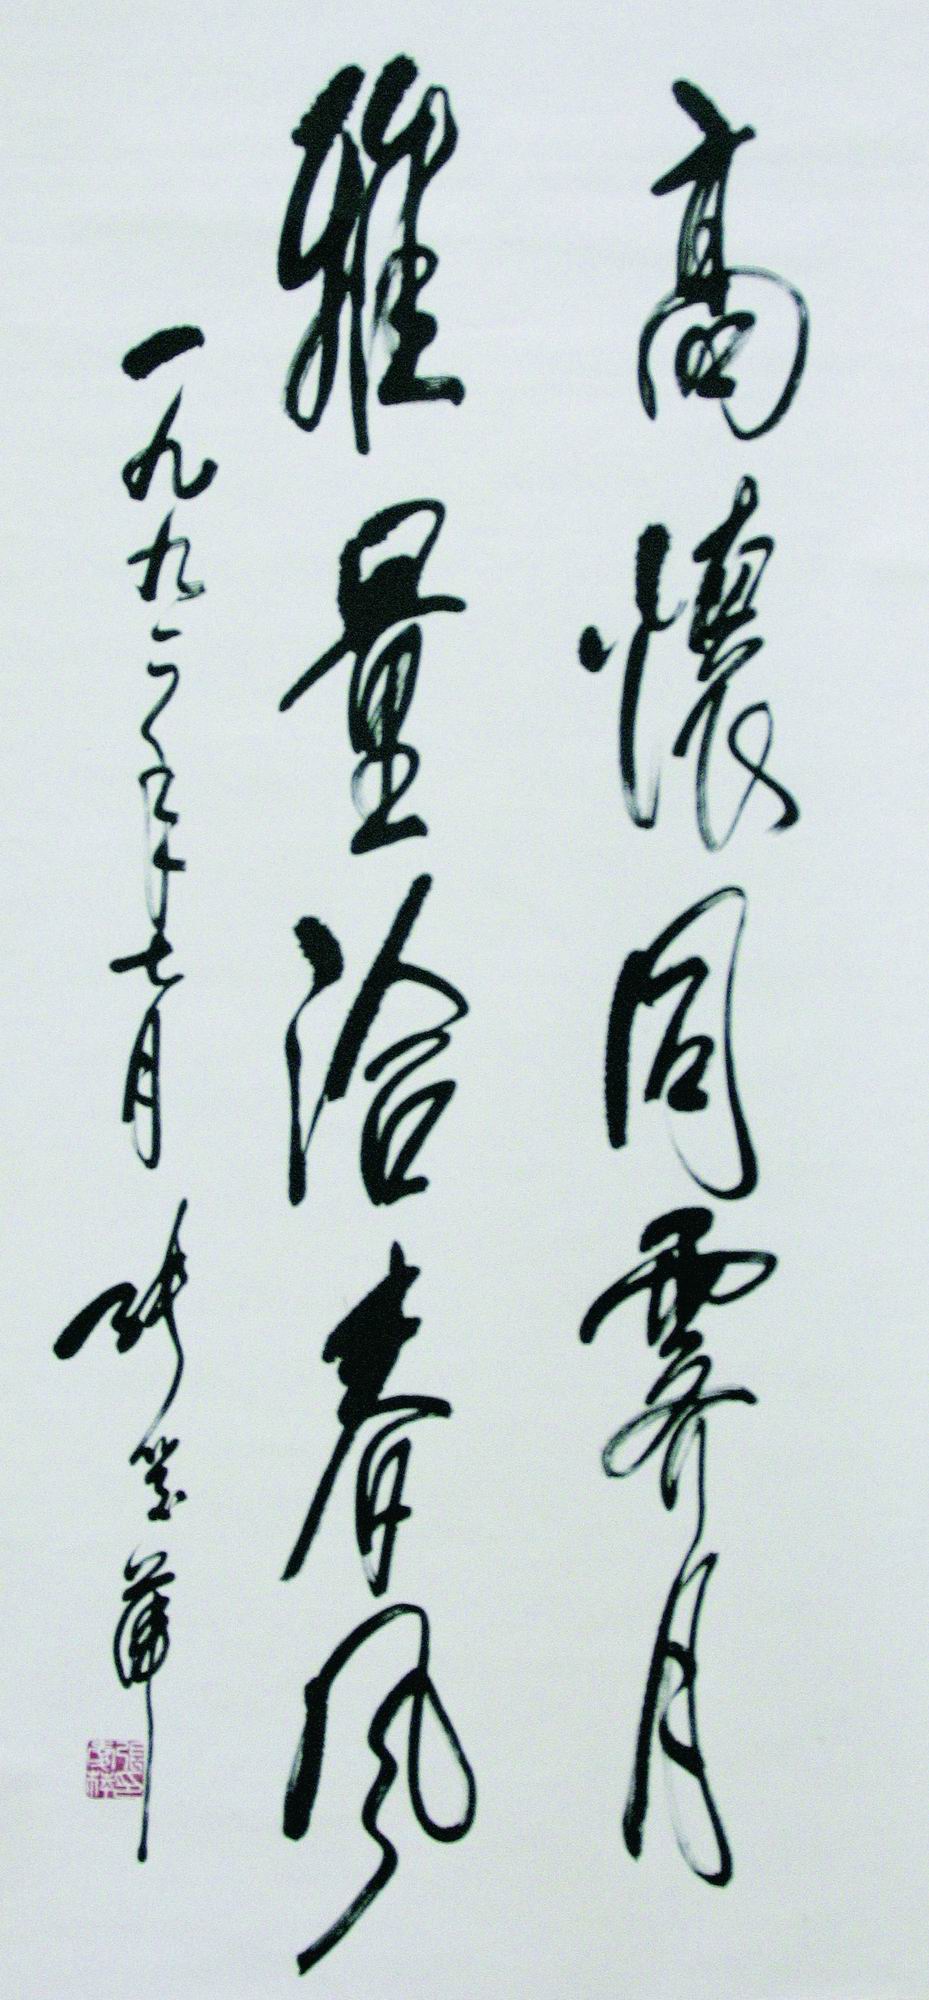 高懷同霽月
雅量洽春風
一九九二年七月 張愛萍